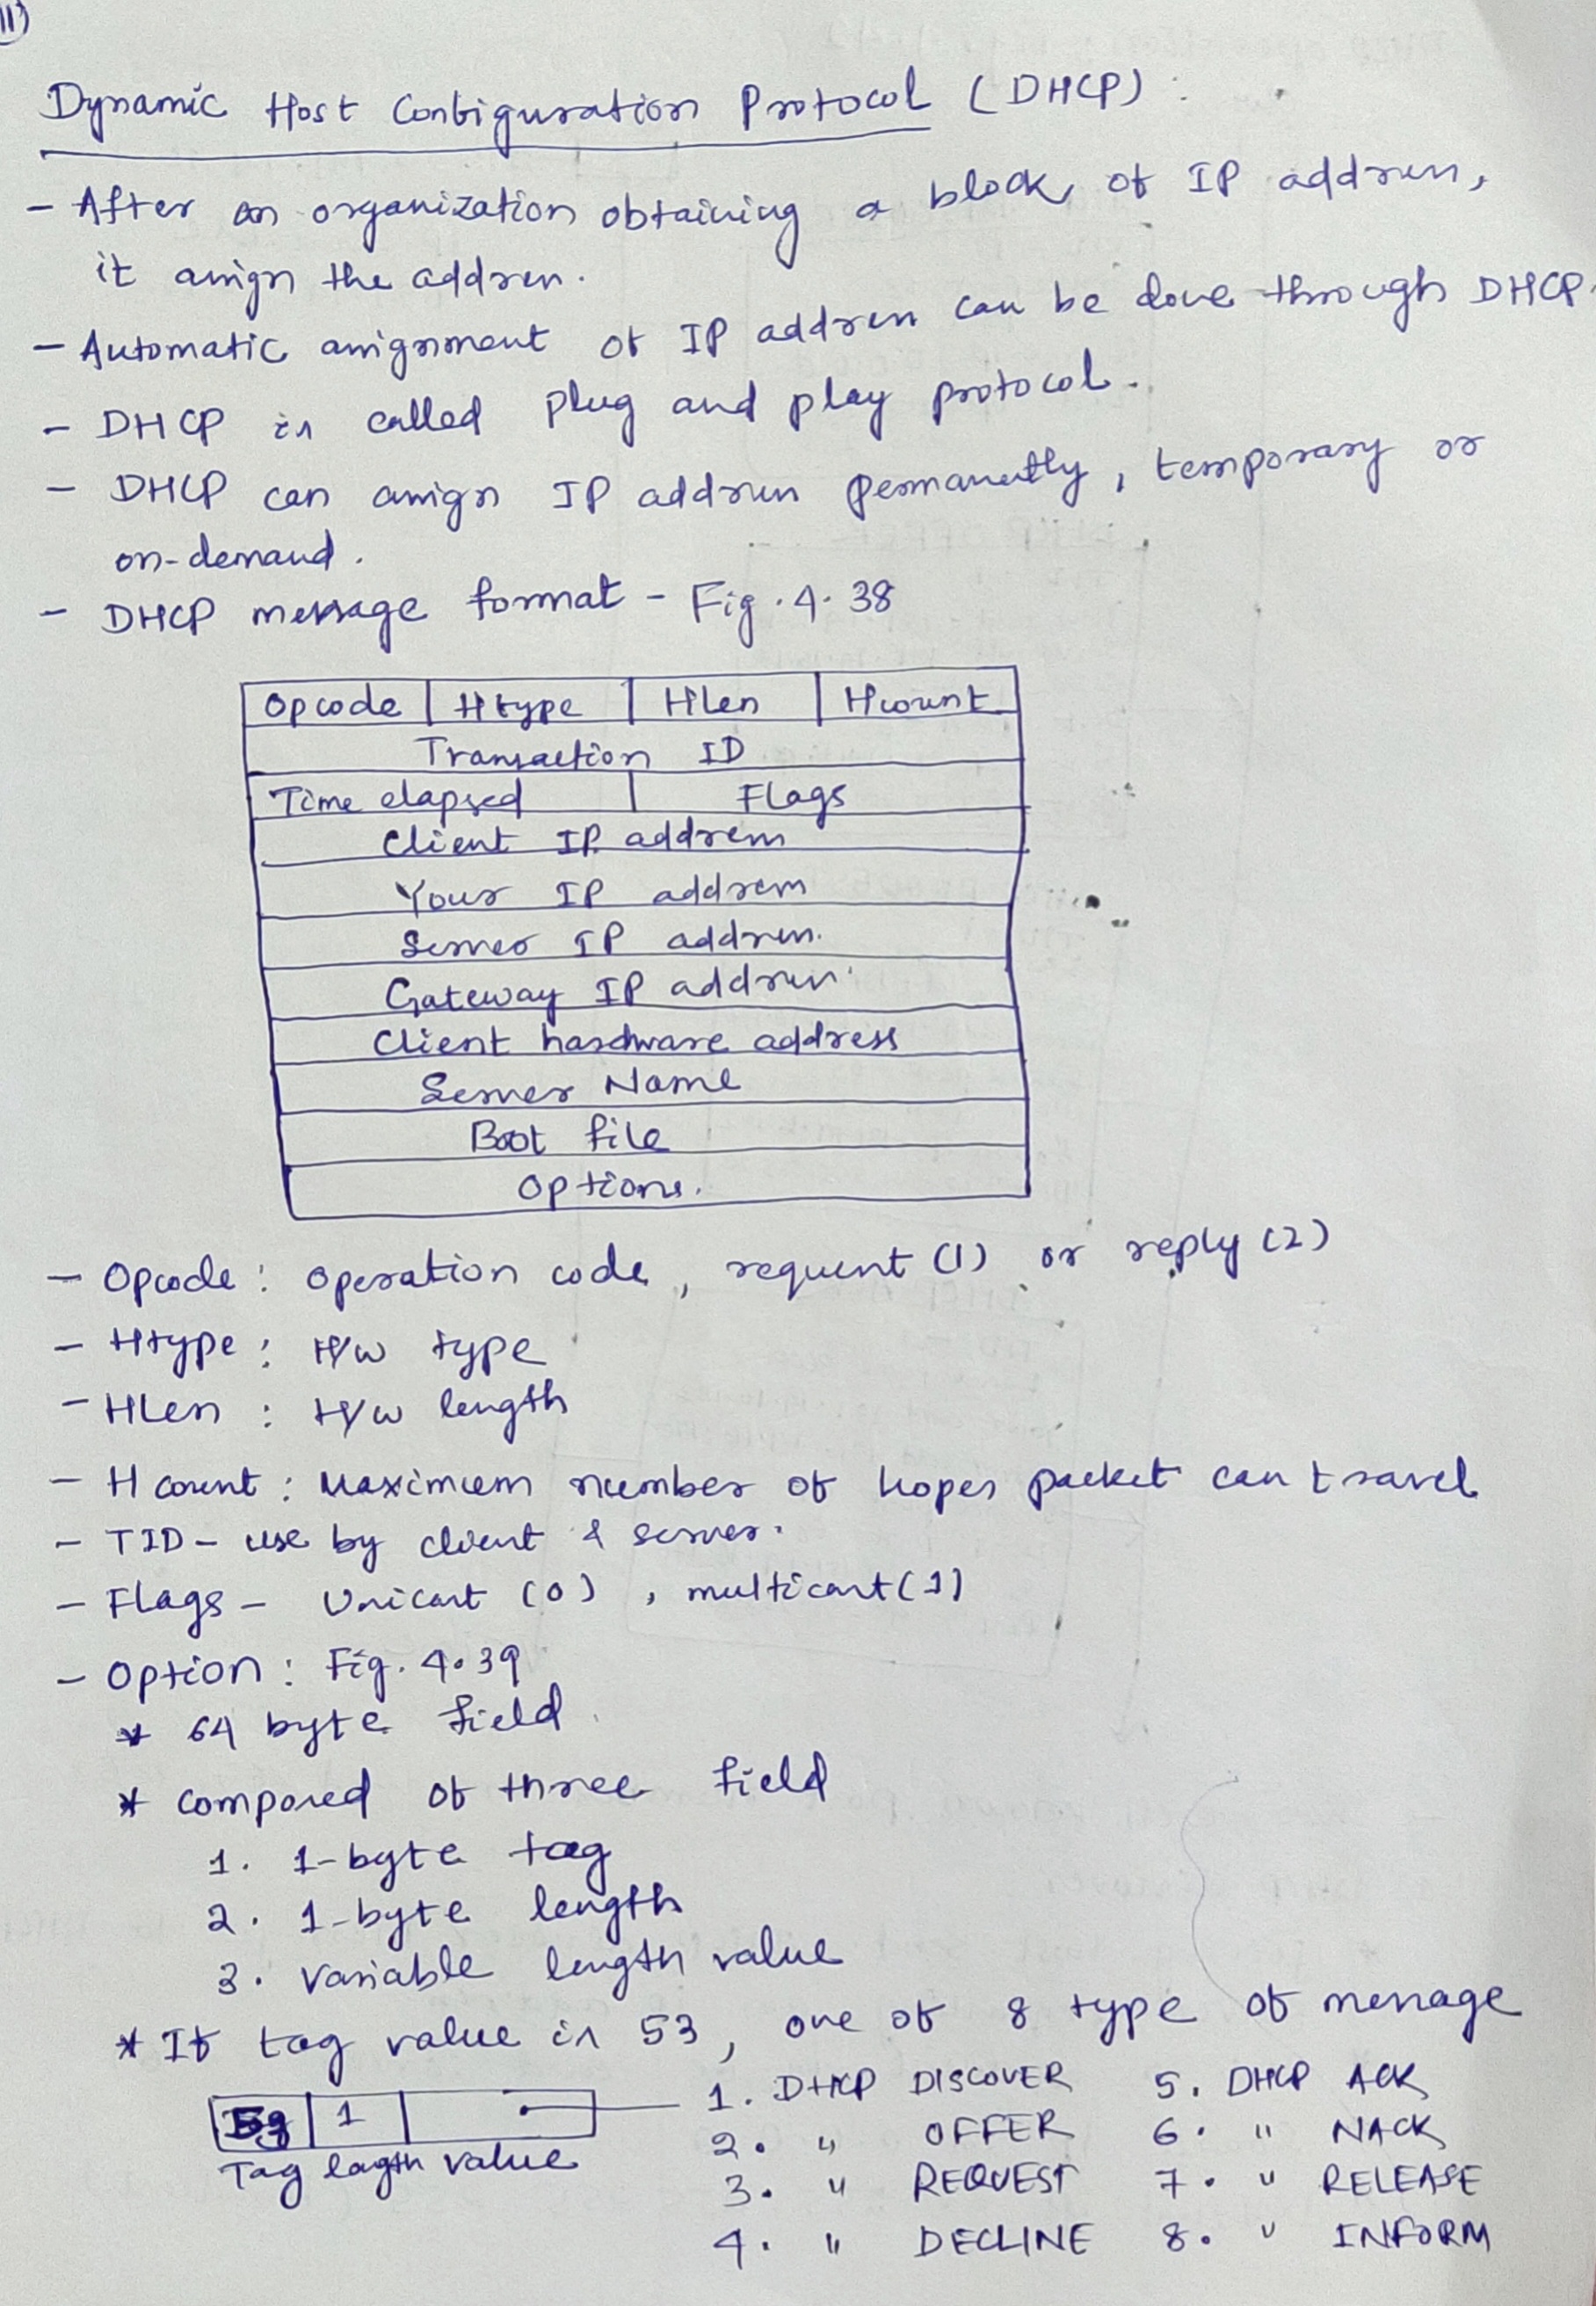 11)
Dynamic Host Configuration Protocol (DHCP) :
- After an organization obtaining a block of IP address,
it assign the address.
- Automatic assignment of IP address can be done through DHCP.
- DHCP is called Plug and play protocol.
- DHCP can assign IP address permanently, temporary or
on-demand.
- DHCP message format - Fig. 4.38
Opcode Htype Hlen Hcount
Transaction ID
Time elapsed Flags
Client IP address
Your IP address
Server IP address.
Gateway IP address
Client hardware address
Server Name
Boot file
Options.
- Opcode : Operation code, request (1) or reply (2)
- Htype : H/w type
- HLen : H/w length
- H count : Maximum number of hopes packet can travel
- TID - use by client & server.
- Flags - Unicast (0), multicast (1)
- Option : Fig. 4.39
* 64 byte field
* composed of three field
1. 1-byte tag
2. 1-byte length
3. Variable length value
* If tag value is 53, one of 8 type of message
53 1
Tag lagth value
1. DHCP DISCOVER 5. DHCP ACK
2. " OFFER 6. " NACK
3. " REQUEST 7. " RELEASE
4. " DECLINE 8. " INFORM